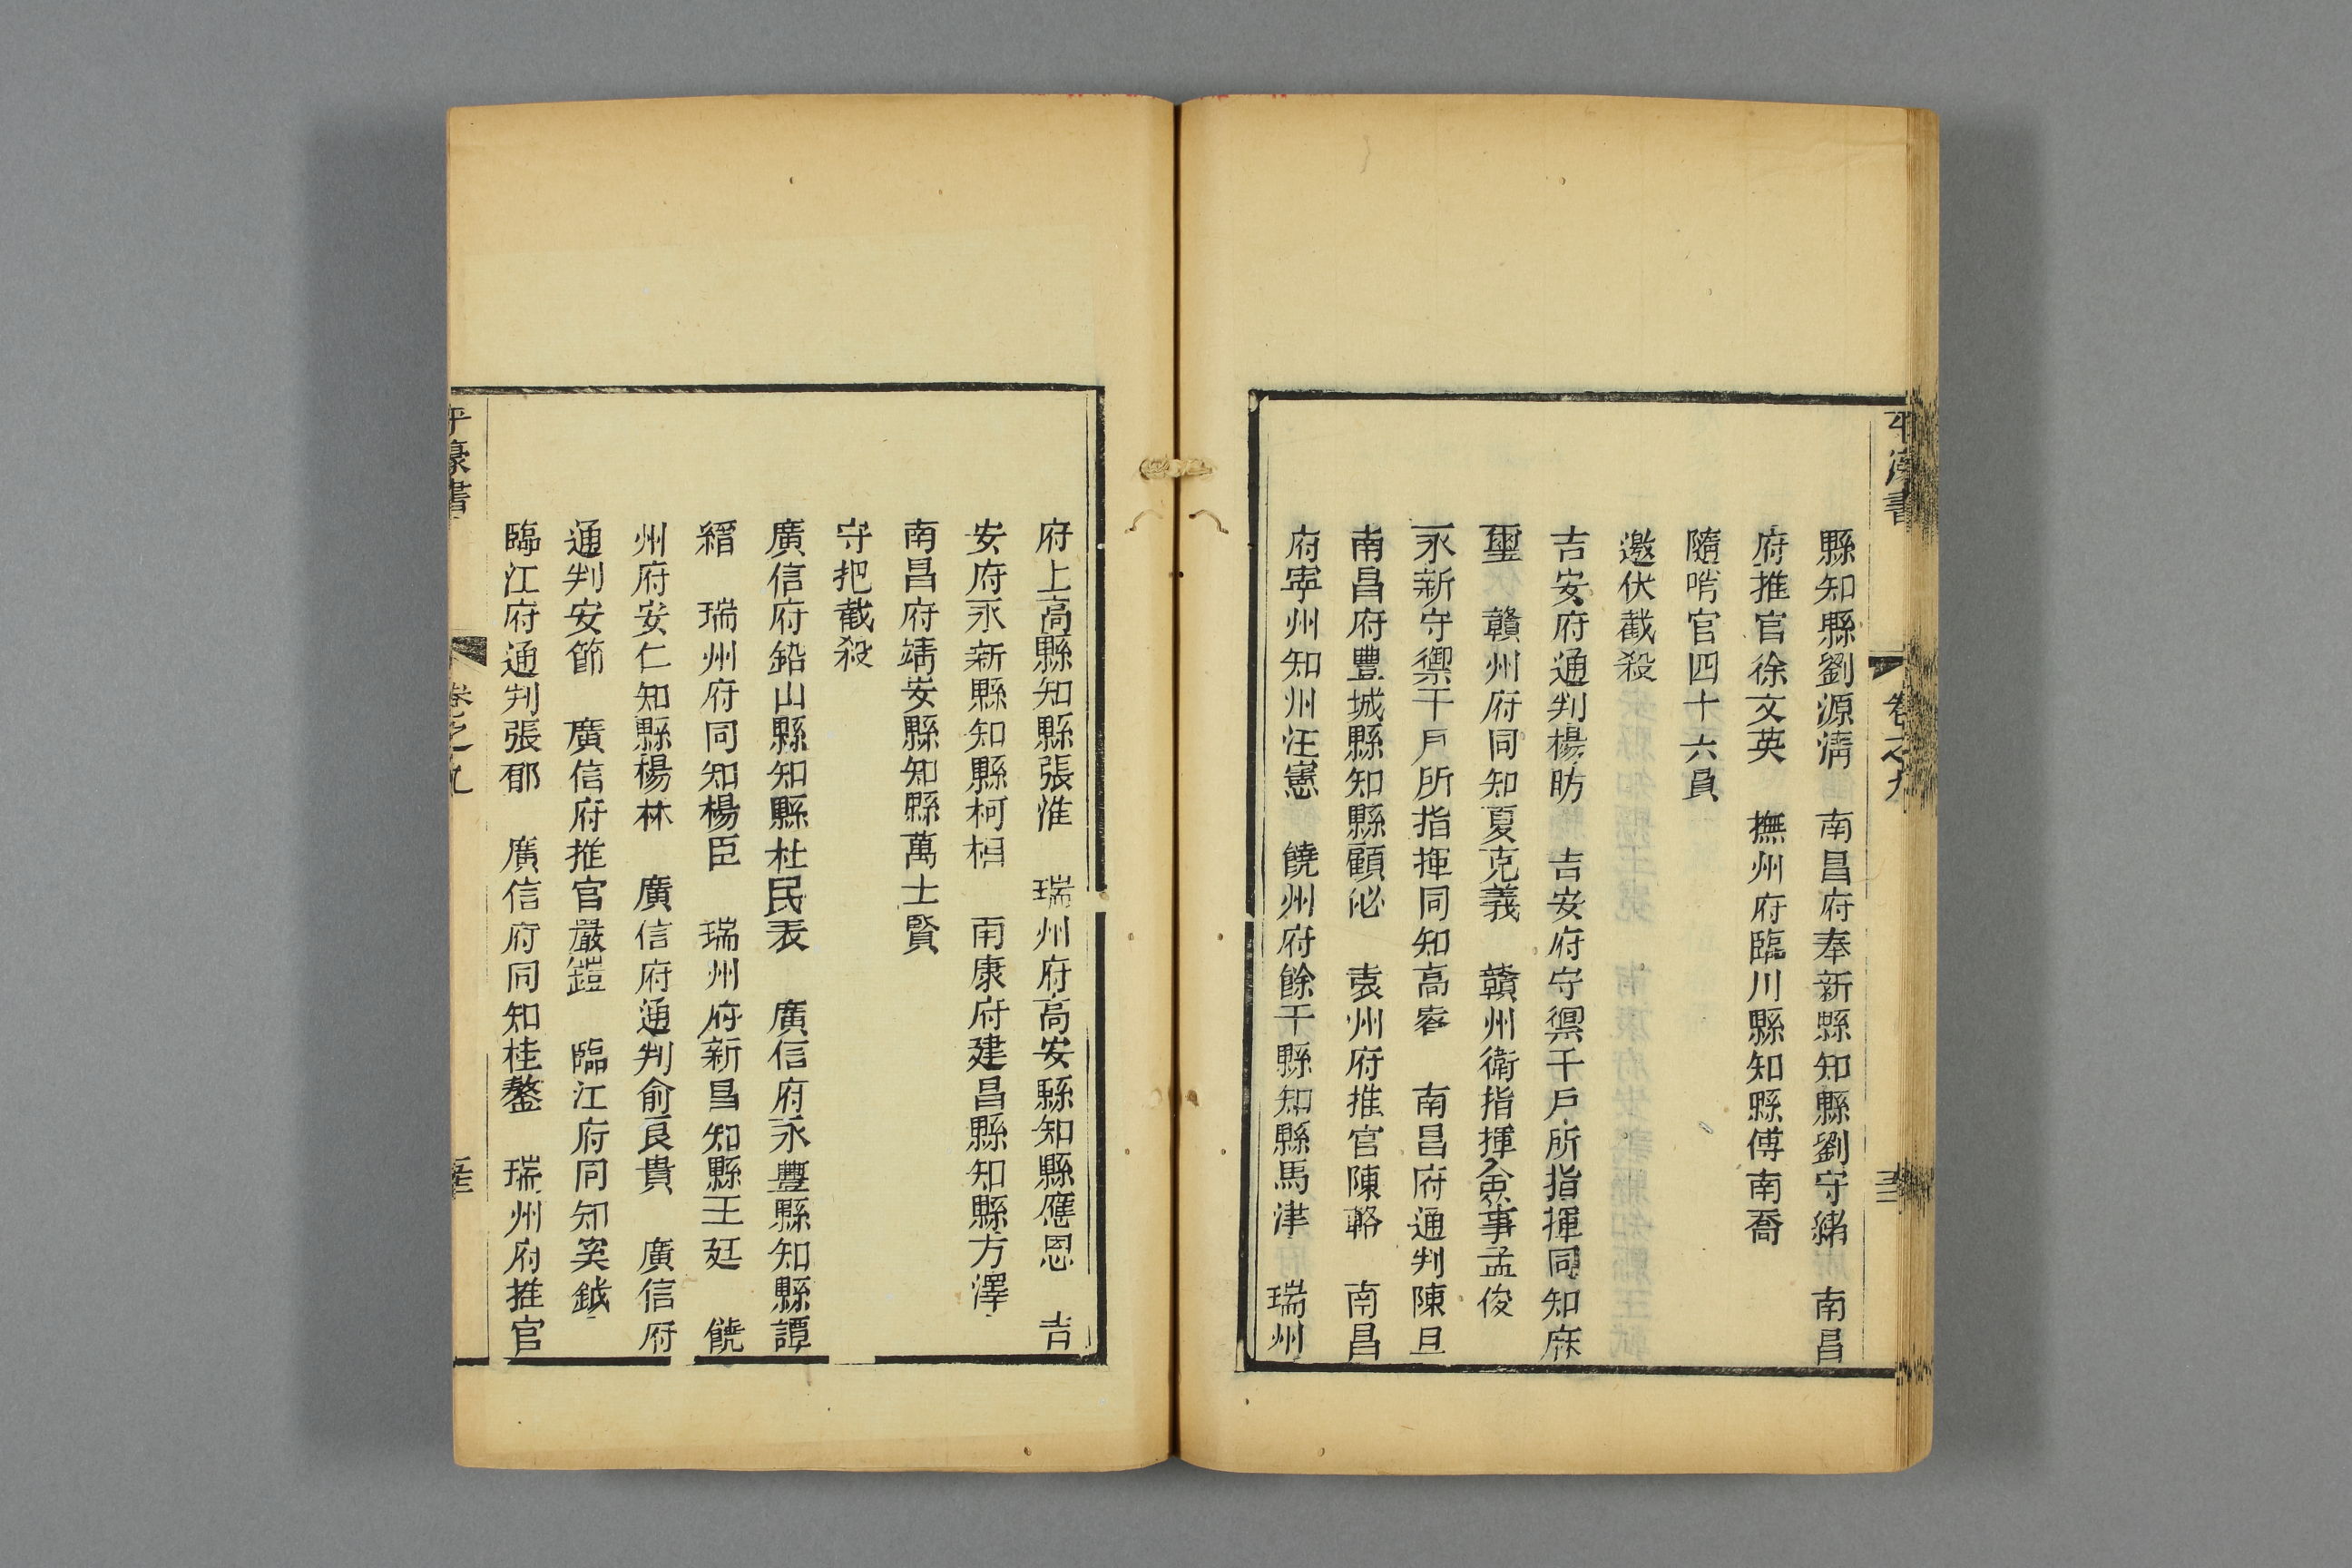 縣知縣劉源清　南昌府奉新縣知縣劉守緒　南昌
府推官徐文英　撫州府臨川縣知縣傅南喬
隨哨官四十六員
邀伏截殺
吉安府通判楊昉　吉安府守禦千戶所指揮同知麻
璽　贛州府同知夏克義　贛州衛指揮僉事孟俊
永新守禦千戶所指揮同知高睿　南昌府通判陳旦
南昌府豐城縣知縣顧佖　袁州府推官陳輅　南昌
府寧州知州汪憲　饒州府餘干縣知縣馬津　瑞州
府上高縣知縣張淮　瑞州府高安縣知縣應恩　吉
安府永新縣知縣柯相　南康府建昌縣知縣方澤
南昌府靖安縣知縣萬士賢
守把截殺
廣信府鉛山縣知縣杜民表　廣信府永豐縣知縣譚
縉　瑞州府同知楊臣　瑞州府新昌知縣王廷　饒
州府安仁知縣楊林　廣信府通判俞良貴　廣信府
通判安節　廣信府推官嚴鎧　臨江府同知奚鉞
臨江府通判張郁　廣信府同知桂鏊　瑞州府推官
平濠書
卷之九